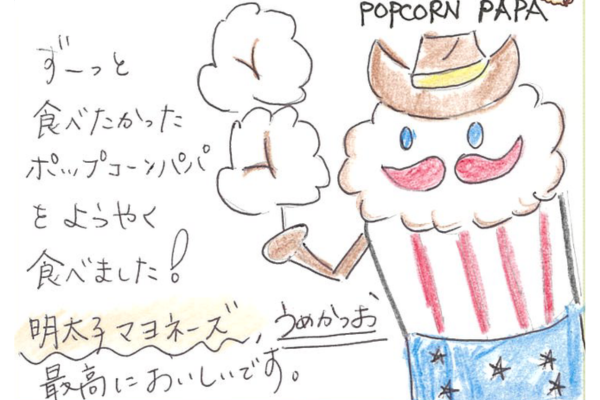 POPCORN PAPA
ずーっと
食べたかった
ポップコーンパパ
をようやく
食べました!
明太子マヨネーズ、うめかつお
最高においしいです。